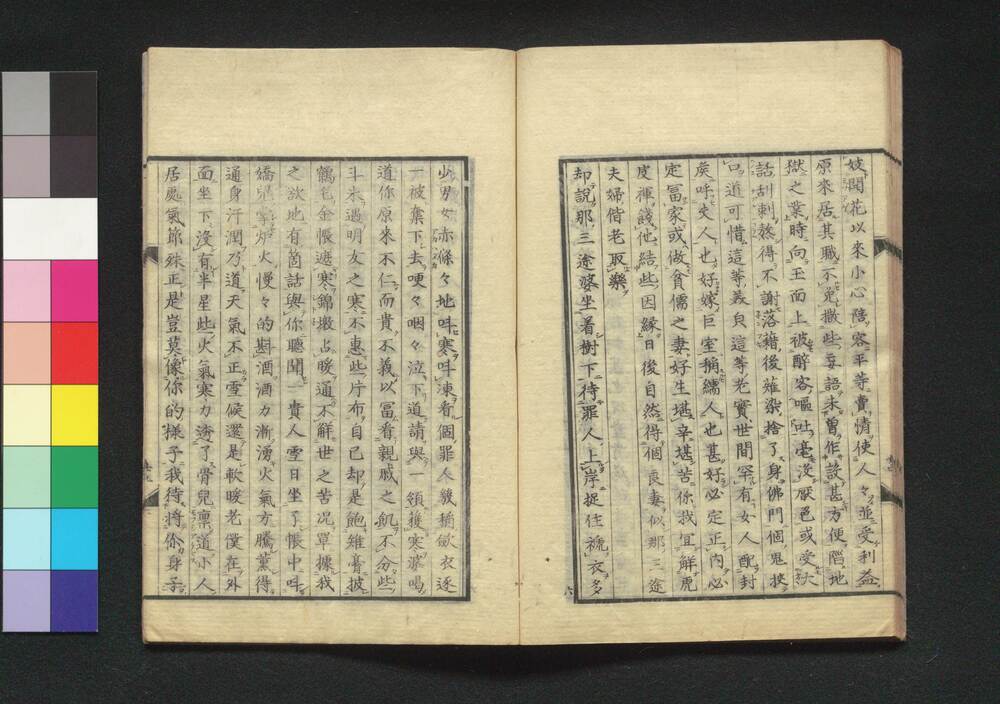 妓閣花以來小心陪客平等賣情使人々並受利益
原來居其職不免撒些妄語未曾作設甚方便陷地
獄之業時向王面上被醉客嘔吐毫沒厭色或受
話刮刺熬得不謝落籍後薙染捨了身佛門個鬼挾
口道可惜這等義貞這等老實世間罕有女人配封
矦呼夫人也好嫁巨室稱孺人也甚好必定正內必
定冨家或做貧儒之妻好生堪辛堪苦你找宜觧虎
皮褌錢他結些因緣日後自然得個良妻似那三途
夫婦偕老取樂
却說那三途婆坐看樹下待罪人上岸捉住褫衣多
少男女赤條々地呌寒呌凍看個罪人皺插飲衣逐
一被集下去哽々咽々泣下道請與一領獲寒婆喝
道你原來不仁而貴不義以冨看親戚之飢不分些
斗米遇朋友之寒不惠些片布自己却是飽雉膏披
鶴氅金帳遮寒錦撒占暖通不觧世之苦况單據我
之欲地有箇話與你聽聞一貴人雪日坐了帳中呌
嬌兒掌炉火慢々的斟酒酒力漸湧火氣方騰薰得
通身汗潤乃道天氣不正雪候還是軟暖老僕在外
面坐下沒有半星些火氣寒力透了骨兒凛道小人
居處氣節殊正是豈莫像你的樣子我待將你身子